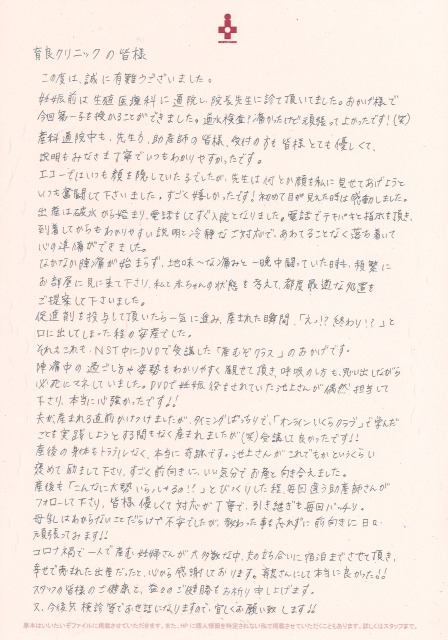 育良クリニックの皆様
この度は、誠に有難うございました。
妊娠前は生殖医療科に通院し、院長先生に診て頂いてました。おかげ様で
今回第一子を授かることができました。通水検査?痛かったけど頑張ってよかったです!(笑)
産科通院中も、先生方、助産師の皆様、受付の方も皆様とても優しくて、
説明もみなさま丁寧でいつもわかりやすかったです。
エコーではいつも顔を隠していた子でしたが、先生は何とか顔を私に見せてあげようと
いつも奮闘して下さいました。すごく嬉しかったです!初めて目が見えた時は感動しました。
出産は破水から始まり、電話をしてすぐ入院となりました。電話でテキパキと指示を頂き、
到着してからもわかりやすい説明と冷静なご対応で、あわてることなく落ち着いて
心の準備ができました。
なかなか陣痛が始まらず、地味〜な痛みと一晩中闘っていた時も、頻繁に
お部屋に見に来て下さり、私と赤ちゃんの状態を考えて、都度最適な処置を
ご提案して下さいました。
促進剤を投与して頂いたら一気に進み、産まれた瞬間、「えっ!?終わり!?」と
口に出してしまった程の安産でした。
それもこれも、NST中にDVDで受講した「産むぞクラス」のおかげです。
陣痛中の過ごし方や姿勢もわかりやすく観せて頂き、呼吸のし方も、思い出しながら
必死にマネしていました。DVDで妊娠役をされていた池上さんが偶然担当して
下さり、本当に心強かったです!!
夫が産まれる直前かけつけましたが、タイミングばっちりで、「オンラインいくらクラブ」で学んだ
ことを実践しようとする間もなく産まれましたが(笑)受講して良かったです!!
産後の身体もトラブルなく、本当に奇跡です。池上さんがこれでもかというくらい
褒めて励まして下さり、すごく前向きに、いい気分でお産と向き合えました。
産後も「こんなに大勢いらっしゃるの!?」とびっくりした程、毎回違う助産師さんが
フォローして下さり、皆様優しくて対応が丁寧で、引き継ぎも毎回バッチリ。
母乳はわからないことだらけで不安でしたが、教わった事も忘れずに前向きに日々
頑張ってみます!!
コロナ禍で一人で産む妊婦さんが大多数な中、夫の立ち会いに宿泊までさせて頂き、
幸せで恵まれた出産だったと、心から感謝しております。育良さんにして本当に良かった!!
スタッフの皆様のご健康と、益々のご健勝もお祈り申し上げます。
又、今後共検診等でお世話になりますので、宜しくお願い致します!!
原本はいいたいぞファイルに掲載させていただきます。また、HPに個人情報を特定されない形で掲載させていただくこともあります。詳しくはスタッフまで。